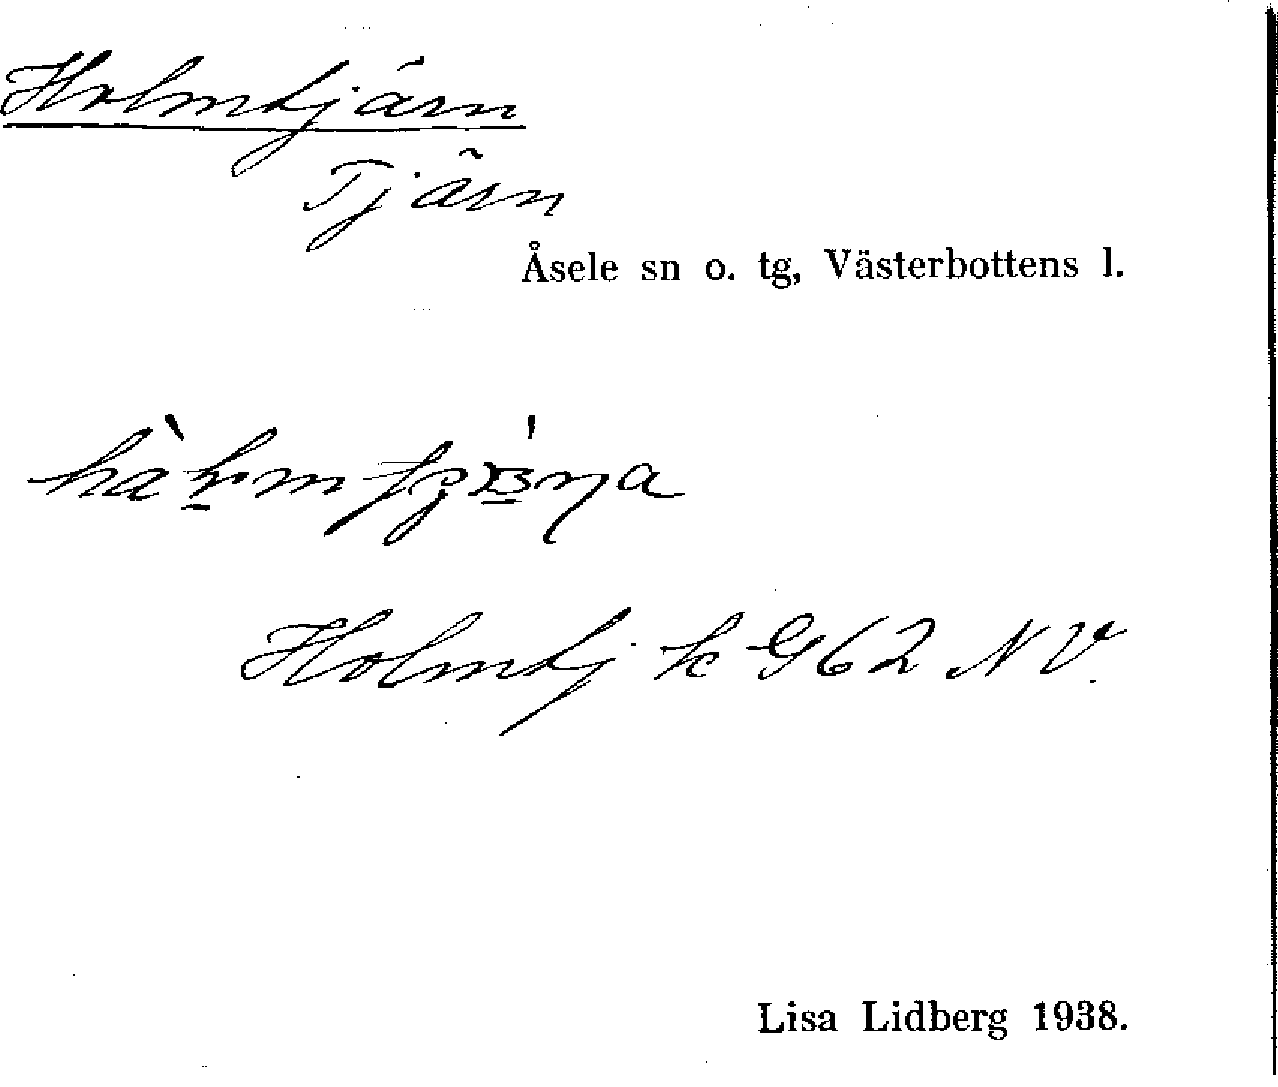 Holmtjärn
Tjärn
Åsele sn o. tg, Västerbottens l.
Holmtj k G62 NV.
Lisa Lidberg 1938.